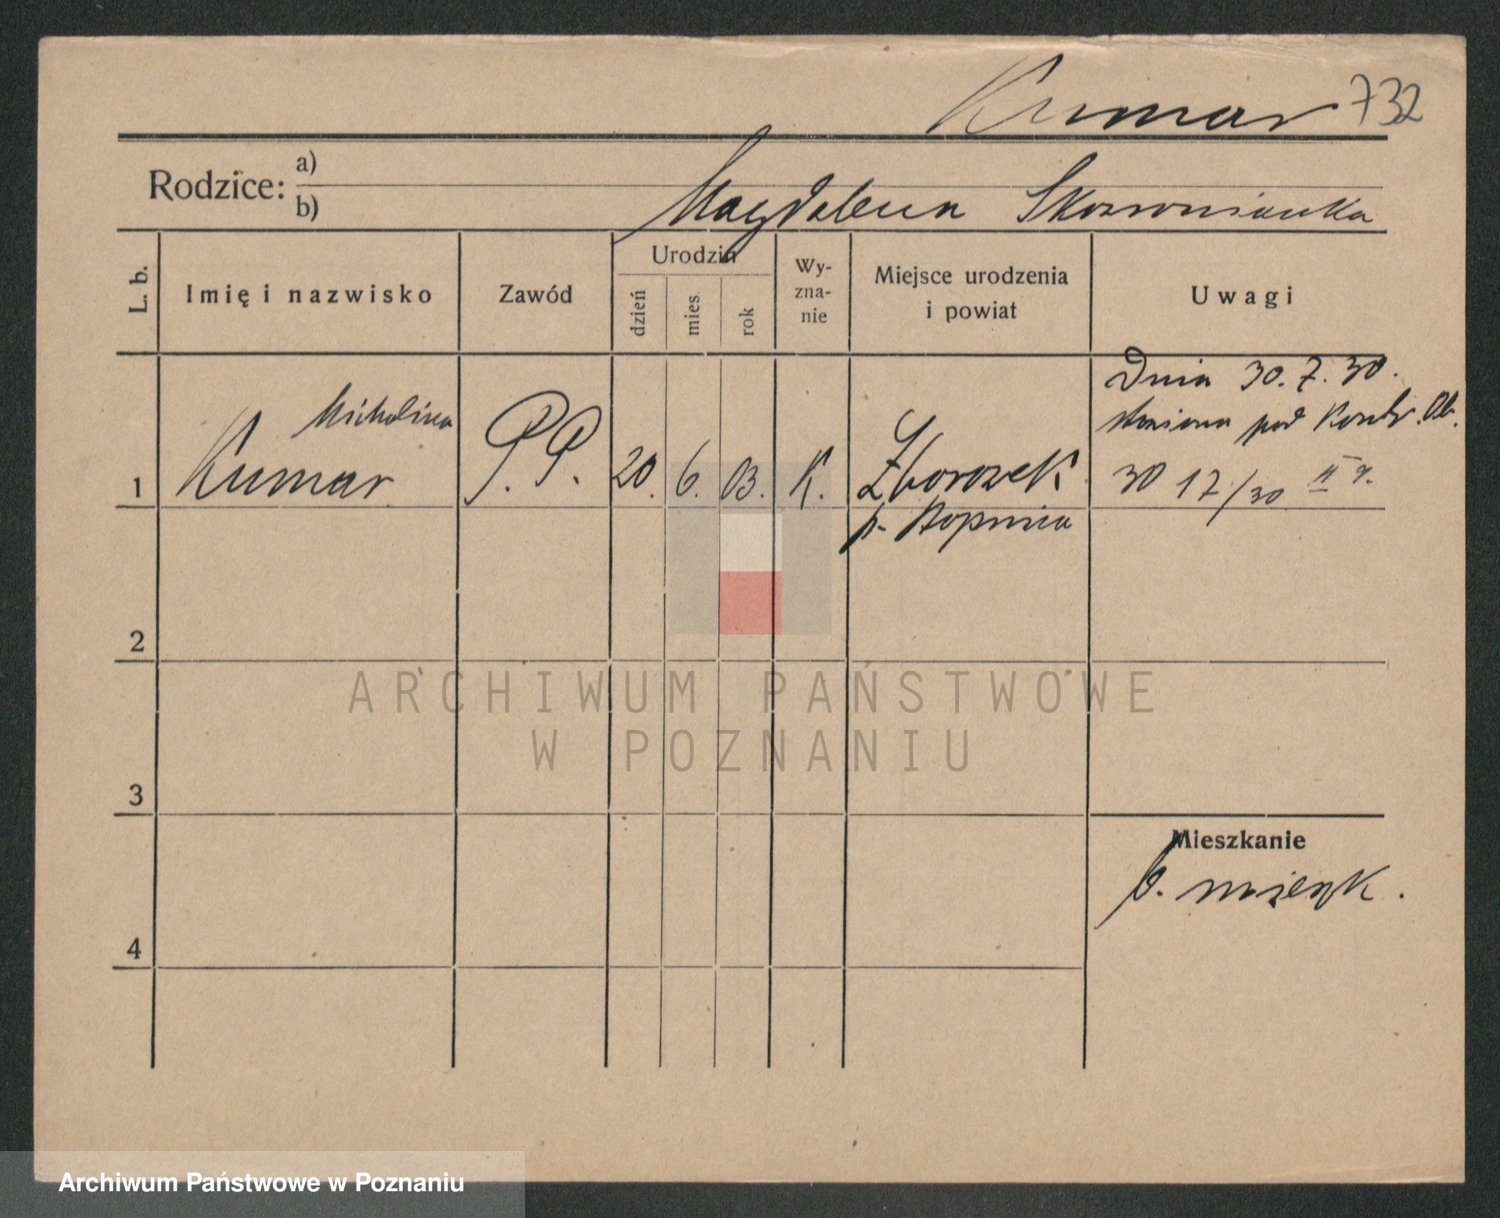 Kumar 732
Rodzice: a)
b) Magdalena Skowronianka
L. b.
Imię i nazwisko
Zawód
Urodzin
dzień
mies.
rok
Wy-
zna-
nie
Miejsce urodzenia
i powiat
Uwagi
Michalina
1 Kumar
P. P.
20. 6. 03.
K.
Zborowek
p. Stopnica
Dnia 30. 7. 30.
pod
30 17/30 II
2
3
4
Mieszkanie
b. mieszk.
ARCHIWUM PAŃSTWOWE
W POZNANIU
Archiwum Państwowe w Poznaniu